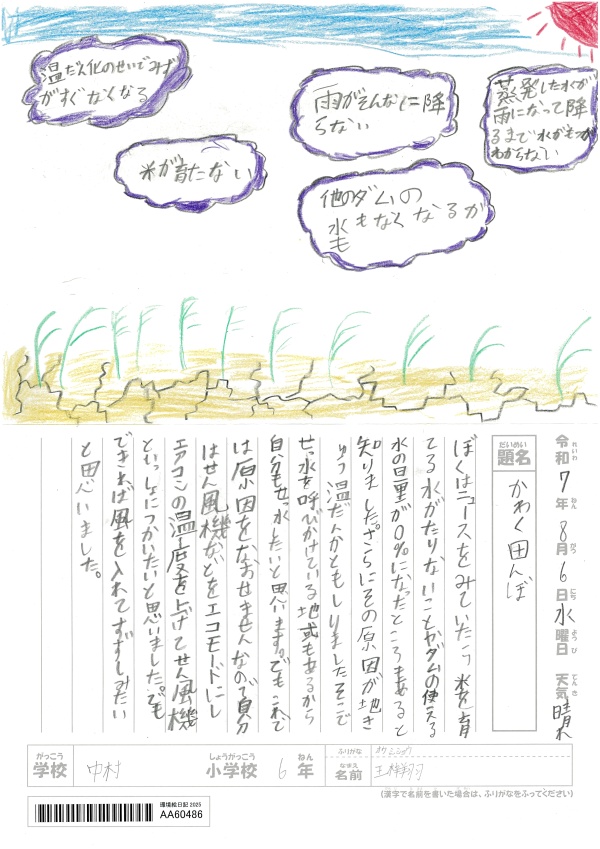 温だん化のせいでみず
がすぐなくなる
米が育たない
雨がそんなに降
らない
他のダムの
水もなくなるか
も
蒸発した水が
雨になって降
るまで水がもつか
わからない
令和7年8月6日水曜日 天気 晴れ
れいわ ねん がつ にち ようび てんき
だいめい
題名 かわく田んぼ
ぼくはニュースをみていたら米を育
てる水がたりないことやダムの使える
水の量が0%になったところもあると
知りました。さらにその原因が地き
ゅう温だんかともしりましたそこで
せっ水を呼びかけている地域もあるから
自分もせっ水したいと思います。でもこれで
は原因をなおせませんなので自分
はせん風機などをエコモードにし
エアコンの温度を上げてせん風機
といっしょにつかいたいと思いました。でも
できれば風を入れてすずしみたい
と思いました。
がっこう しょうがっこう ねん
学校 中村 小学校 6年
ふりがな
なまえ
名前
(漢字で名前を書いた場合は、ふりがなをふってください)
環境絵日記 2025
AA60486